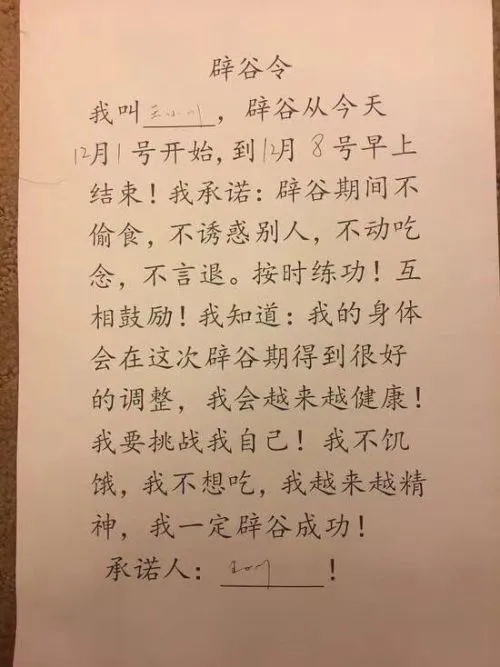 辟谷令
我叫王小川，辟谷从今天
12月1号开始,到12月8号早上
结束！我承诺：辟谷期间不
偷食，不诱惑别人，不动吃
念，不言退。按时练功！互
相鼓励！我知道：我的身体
会在这次辟谷期得到很好
的调整，我会越来越健康！
我要挑战我自己！我不饥
饿，我不想吃，我越来越精
神，我一定辟谷成功！
承诺人：！